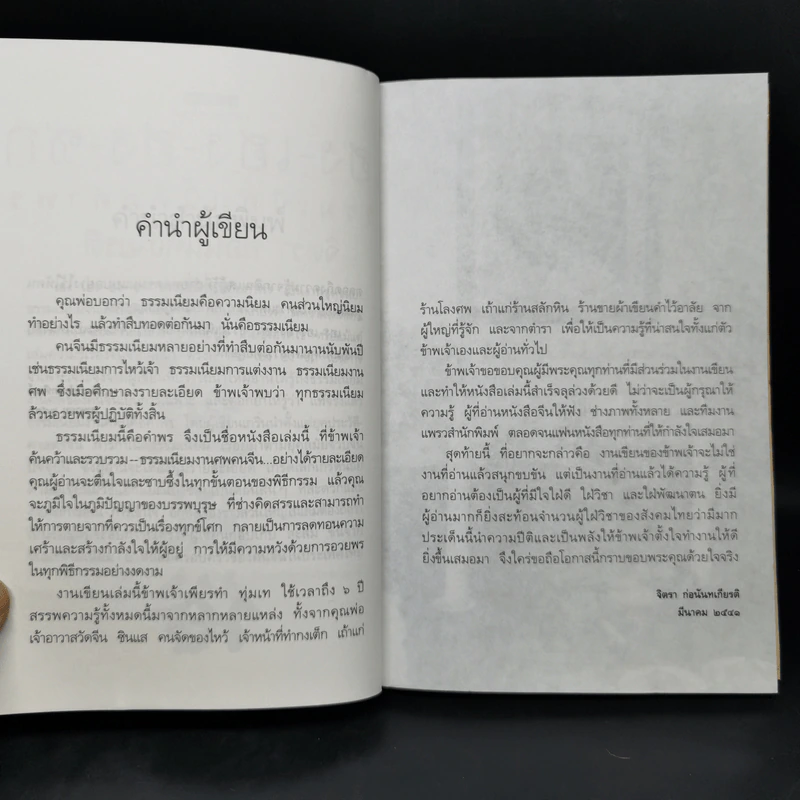 คำนำผู้เขียน
คุณพ่อบอกว่า ธรรมเนียมคือความนิยม คนส่วนใหญ่นิยม
ทำอย่างไร แล้วทำสืบทอดต่อกันมา นั่นคือธรรมเนียม
คนจีนมีธรรมเนียมหลายอย่างที่ทำสืบต่อกันมานานนับพันปี
เช่นธรรมเนียมการไหว้เจ้า ธรรมเนียมการแต่งงาน ธรรมเนียมงาน
ศพ ซึ่งเมื่อศึกษาลงรายละเอียด ข้าพเจ้าพบว่า ทุกธรรมเนียม
ล้วนอวยพรผู้ปฏิบัติทั้งสิ้น
ธรรมเนียมนี้คือคำพร จึงเป็นชื่อหนังสือเล่มนี้ ที่ข้าพเจ้า
ค้นคว้าและรวบรวม--ธรรมเนียมงานศพคนจีน...อย่างได้รายละเอียด
คุณผู้อ่านจะตื่นใจและซาบซึ้งในทุกขั้นตอนของพิธีกรรม แล้วคุณ
จะภูมิใจในภูมิปัญญาของบรรพบุรุษ ที่ช่างคิดสรรและสามารถทำ
ให้การตายจากที่ควรเป็นเรื่องทุกข์โศก กลายเป็นการลดทอนความ
เศร้าและสร้างกำลังใจให้ผู้อยู่ การให้มีความหวังด้วยการอวยพร
ในทุกพิธีกรรมอย่างงดงาม
งานเขียนเล่มนี้ข้าพเจ้าเพียรทำ ทุ่มเท ใช้เวลาถึง ๖ ปี
สรรพความรู้ทั้งหมดนี้มาจากหลากหลายแหล่ง ทั้งจากคุณพ่อ
เจ้าอาวาสวัดจีน ซินแส คนจัดของไหว้ เจ้าหน้าที่ทำกงเต็ก เถ้าแก่
ร้านโลงศพ เถ้าแก่ร้านสลักหิน ร้านขายผ้าเขียนคำไว้อาลัย จาก
ผู้ใหญ่ที่รู้จัก และจากตำรา เพื่อให้เป็นความรู้ที่น่าสนใจทั้งแก่ตัว
ข้าพเจ้าเองและผู้อ่านทั่วไป
ข้าพเจ้าขอขอบคุณผู้มีพระคุณทุกท่านที่มีส่วนร่วมในงานเขียน
และทำให้หนังสือเล่มนี้สำเร็จลุล่วงด้วยดี ไม่ว่าจะเป็นผู้กรุณาให้
ความรู้ ผู้ที่อ่านหนังสือจีนให้ฟัง ช่างภาพทั้งหลาย และทีมงาน
แพรวสำนักพิมพ์ ตลอดจนแฟนหนังสือทุกท่านที่ให้กำลังใจเสมอมา
สุดท้ายนี้ ที่อยากจะกล่าวคือ งานเขียนของข้าพเจ้าจะไม่ใช่
งานที่อ่านแล้วสนุกขบขัน แต่เป็นงานที่อ่านแล้วได้ความรู้ ผู้ที่
อยากอ่านต้องเป็นผู้ที่มีใจใฝ่ดี ใฝ่วิชา และใฝ่พัฒนาตน ยิ่งมี
ผู้อ่านมากก็ยิ่งสะท้อนจำนวนผู้ใฝ่วิชาของสังคมไทยว่ามีมาก
ประเด็นนี้นำความปีติและเป็นพลังให้ข้าพเจ้าตั้งใจทำงานให้ดี
ยิ่งขึ้นเสมอมา จึงใคร่ขอถือโอกาสนี้กราบขอบพระคุณด้วยใจจริง
จิตรา ก่อนันทเกียรติ
มีนาคม ๒๕๔๑